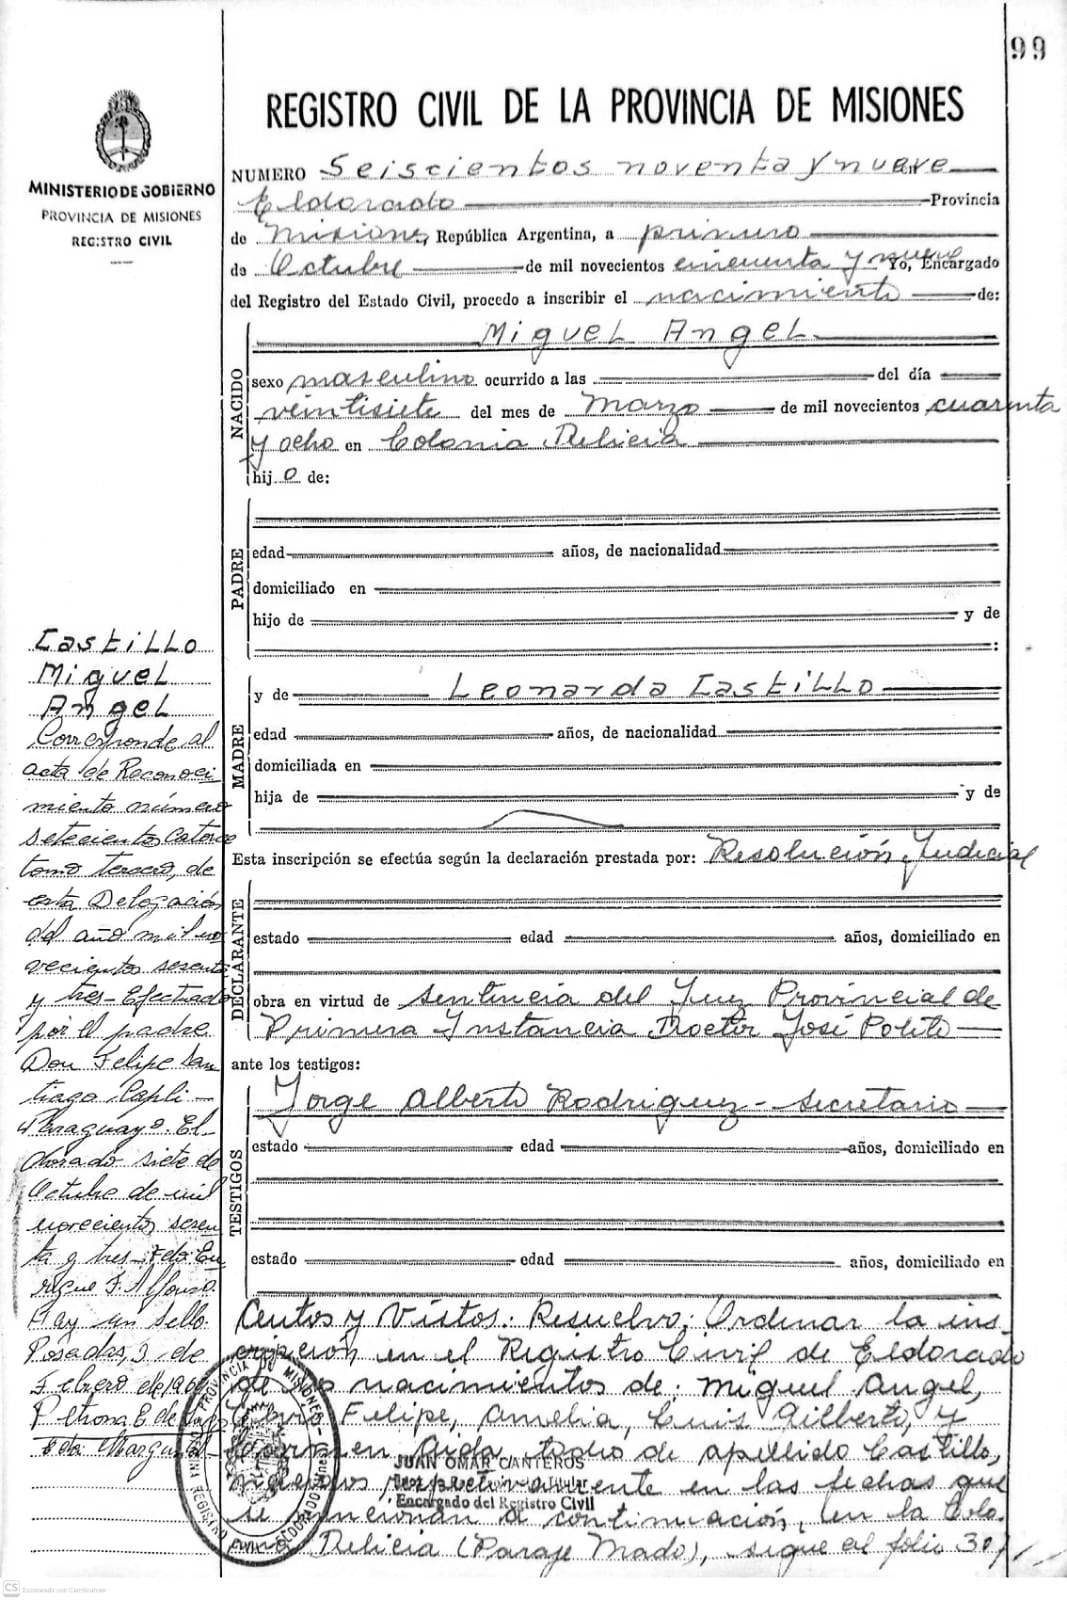 99
REGISTRO CIVIL DE LA PROVINCIA DE MISIONES
MINISTERIO DE GOBIERNO
PROVINCIA DE MISIONES
REGISTRO CIVIL
NUMERO Seiscientos noventa y nueve
Eldorado Provincia
de Misiones, República Argentina, a primero
de Octubre de mil novecientos cincuenta y nueve Yo, Encargado
del Registro del Estado Civil, procedo a inscribir el nacimiento de:
NACIDO
Miguel Angel
sexo masculino ocurrido a las del día
veintisiete del mes de Marzo de mil novecientos cuarenta
y ocho en Colonia Delicia
hijo de:
PADRE
edad años, de nacionalidad
domiciliado en
hijo de y de
:
MADRE
y de Leonarda Castillo
edad años, de nacionalidad
domiciliada en
hija de y de
Esta inscripción se efectúa según la declaración prestada por: Resolución Judicial
DECLARANTE
estado edad años, domiciliado en
obra en virtud de sentencia del Juez Provincial de
Primera Instancia Doctor José Polito
ante los testigos:
TESTIGOS
Jorge Alberto Rodriguez - Secretario
estado edad años, domiciliado en
estado edad años, domiciliado en
y Vistos: Resuelvo: Ordenar la ins-
cripción en el Registro Civil de Eldorado
de los nacimientos de: Miguel Angel,
Felipe, Amelia, Luis Gilberto, y
Carmen todos de apellido Castillo,
nacidos respectivamente en las fechas que
se mencionan a continuación, en la Colo.
Delicia (Paraje Mado), sigue al folio 301
Castillo
Miguel
Angel
Corresponde al
acta de Reconoci
miento número
setecientos catorce
tomo tercero, de
esta Delegación
del año mil no
vecientos sesenta
y tres - Efectuado
por el padre
Don Felipe San
tiago Capli -
Paraguayo. El-
dorado siete de
Octubre de mil
novecientos sesen
ta y tres - Fdo: En
rique F. Alfonso.
Hay un sello.
Posadas, 3 de
Febrero de
Petrona E. de
JUAN OMAR CANTEROS
Encargado del Registro Civil
PROVINCIA DE MISIONES
REGISTRO
ELDORADO
CS Escaneado con CamScanner